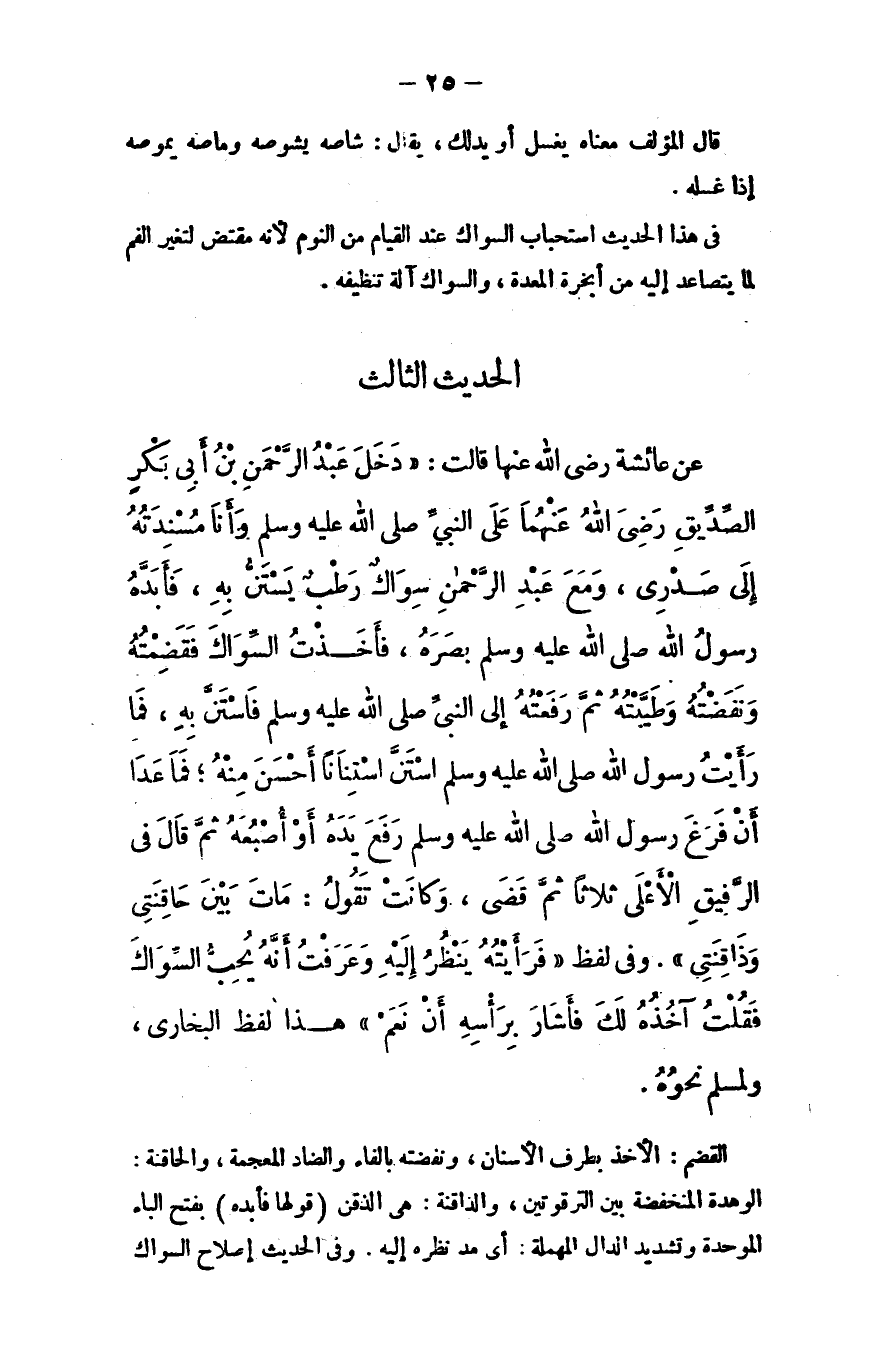 – ٢٥ –
قال المؤلف معناه يغسل أو يدلك ، يقال : شاصه يشوصه وماصه يموصه
إذا غسله .
فى هذا الحديث استحباب السواك عند القيام من النوم لأنه مقتض لتغير الفم
لما يتصاعد إليه من أبخرة المعدة ، والسواك آلة تنظيفه .
الحديث الثالث
عن عائشة رضى الله عنها قالت : « دَخَلَ عَبْدُ الرَّحْمَنِ بْنُ أَبِى بَكْرٍ
الصِّدِّيقِ رَضِىَ اللهُ عَنْهُمَا عَلَى النبيِّ صلى الله عليه وسلم وَأَنَا مُسْنِدَتُهُ
إِلَى صَدْرِى ، وَمَعَ عَبْدِ الرَّحْمٰنِ سِوَاكٌ رَطْبٌ يَسْتَنُّ بِهِ ، فَأَبَدَّهُ
رسولُ الله صلى الله عليه وسلم بصَرَهُ ، فأَخَذْتُ السِّوَاكَ فَقَضِمْتُهُ
وَنَفَضْتُهُ وَطَيَّبْتُهُ ثُمَّ رَفَعْتُهُ إلى النبيِّ صلى الله عليه وسلم فَاسْتَنَّ بِهِ ، فَمَا
رَأَيْتُ رسول الله صلى الله عليه وسلم اسْتَنَّ اسْتِنَانًا أَحْسَنَ مِنْهُ ؛ فَمَا عَدَا
أَنْ فَرَغَ رسول الله صلى الله عليه وسلم رَفَعَ يَدَهُ أَوْ أُصْبُعَهُ ثُمَّ قَالَ فى
الرَّفِيقِ الْأَعْلَى ثلاثًا ثُمَّ قَضَى ، وَكَانَتْ تَقُولُ : مَاتَ بَيْنَ حَاقِنَتِي
وَذَاقِنَتِي » . وفى لفظ « فَرَأَيْتُهُ يَنْظُرُ إِلَيْهِ وَعَرَفْتُ أَنَّهُ يُحِبُّ السِّوَاكَ
فَقُلْتُ آخُذُهُ لَكَ فأَشَارَ بِرَأْسِهِ أَنْ نَعَمْ » هذا لفظ البخارى ،
ولمسلم نحوُهُ .
القضم : الأخذ بطرف الأسنان ، ونفضته بالفاء والضاد المعجمة ، والحاقنة :
الوهدة المنخفضة بين الترقوتين ، والذاقنة : هى الذقن (قولها فأبده) بفتح الباء
الموحدة وتشديد الدال المهملة : أى مد نظره إليه . وفى الحديث إصلاح السواك